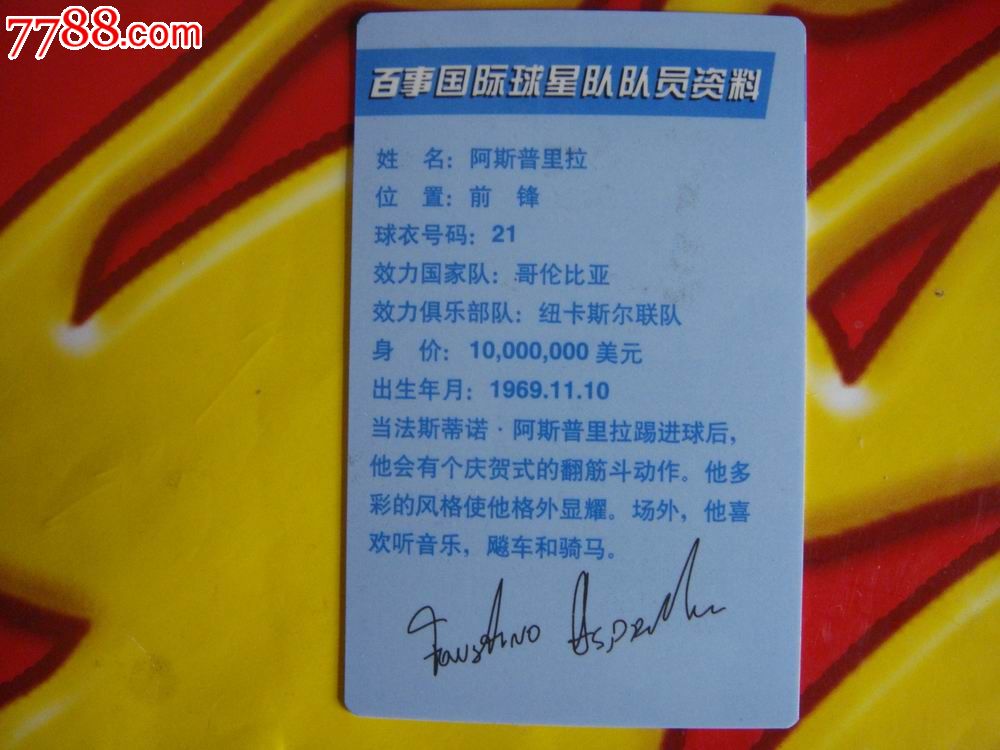 7788.com
百事国际球星队队员资料
姓 名：阿斯普里拉
位 置：前 锋
球衣号码：21
效力国家队：哥伦比亚
效力俱乐部队：纽卡斯尔联队
身 价：10,000,000 美元
出生年月：1969.11.10
当法斯蒂诺·阿斯普里拉踢进球后，
他会有个庆贺式的翻筋斗动作。他多
彩的风格使他格外显耀。场外，他喜
欢听音乐，飚车和骑马。
Faustino Asprilla